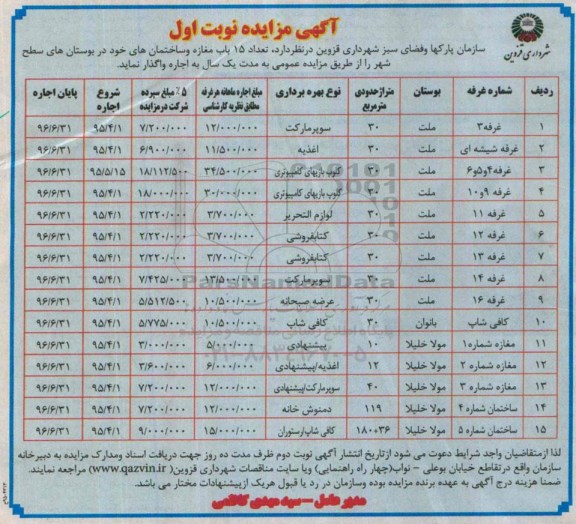 آگهی مزایده نوبت اول
شهرداری قزوین
سازمان پارکها وفضای سبز شهرداری قزوین درنظردارد، تعداد ۱۵ باب مغازه وساختمان های خود در بوستان های سطح
شهر را از طریق مزایده عمومی به مدت یک سال به اجاره واگذار نماید.
ردیف | شماره غرفه | بوستان | متراژحدودی مترمربع | نوع بهره برداری | مبلغ اجاره ماهانه هرغرفه مطابق نظریه کارشناسی | ۵٪ مبلغ سپرده شرکت درمزایده | شروع اجاره | پایان اجاره
۱ | غرفه۳ | ملت | ۳۰ | سوپرمارکت | ۱۲/۰۰۰/۰۰۰ | ۷/۲۰۰/۰۰۰ | ۹۵/۴/۱ | ۹۶/۶/۳۱
۲ | غرفه شیشه ای | ملت | ۳۰ | اغذیه | ۱۱/۵۰۰/۰۰۰ | ۶/۹۰۰/۰۰۰ | ۹۵/۴/۱ | ۹۶/۶/۳۱
۳ | غرفه۴و۵و۶ | ملت | ۳۰ | کلوپ بازیهای کامپیوتری | ۳۴/۵۰۰/۰۰۰ | ۱۸/۱۱۲/۵۰۰ | ۹۵/۵/۱۵ | ۹۶/۶/۳۱
۴ | غرفه ۹و۱۰ | ملت | ۳۰ | کلوپ بازیهای کامپیوتری | ۳۰/۰۰۰/۰۰۰ | ۱۸/۰۰۰/۰۰۰ | ۹۵/۴/۱ | ۹۶/۶/۳۱
۵ | غرفه ۱۱ | ملت | ۳۰ | لوازم التحریر | ۳/۷۰۰/۰۰۰ | ۲/۲۲۰/۰۰۰ | ۹۵/۴/۱ | ۹۶/۶/۳۱
۶ | غرفه ۱۲ | ملت | ۳۰ | کتابفروشی | ۳/۷۰۰/۰۰۰ | ۲/۲۲۰/۰۰۰ | ۹۵/۴/۱ | ۹۶/۶/۳۱
۷ | غرفه ۱۳ | ملت | ۳۰ | کتابفروشی | ۳/۷۰۰/۰۰۰ | ۲/۲۲۰/۰۰۰ | ۹۵/۴/۱ | ۹۶/۶/۳۱
۸ | غرفه ۱۴ | ملت | ۳۰ | سوپرمارکت | ۱۳/۵۰۰/۰۰۰ | ۷/۴۲۵/۰۰۰ | ۹۵/۴/۱ | ۹۶/۶/۳۱
۹ | غرفه ۱۶ | ملت | ۳۰ | عرضه صبحانه | ۱۰/۵۰۰/۰۰۰ | ۵/۵۱۲/۵۰۰ | ۹۵/۴/۱ | ۹۶/۶/۳۱
۱۰ | کافی شاپ | بانوان | ۳۰ | کافی شاپ | ۱۰/۵۰۰/۰۰۰ | ۵/۷۷۵/۰۰۰ | ۹۵/۴/۱ | ۹۶/۶/۳۱
۱۱ | مغازه شماره۱ | مولا خلیلا | ۱۰ | پیشنهادی | ۵/۰۰۰/۰۰۰ | ۳/۰۰۰/۰۰۰ | ۹۵/۴/۱ | ۹۶/۶/۳۱
۱۲ | مغازه شماره ۲ | مولا خلیلا | ۱۲ | اغذیه/پیشنهادی | ۶/۰۰۰/۰۰۰ | ۳/۶۰۰/۰۰۰ | ۹۵/۴/۱ | ۹۶/۶/۳۱
۱۳ | مغازه شماره ۳ | مولا خلیلا | ۴۰ | سوپرمارکت/پیشنهادی | ۱۲/۰۰۰/۰۰۰ | ۷/۲۰۰/۰۰۰ | ۹۵/۴/۱ | ۹۶/۶/۳۱
۱۴ | ساختمان شماره ۴ | مولا خلیلا | ۱۱۹ | دمنوش خانه | ۱۲/۰۰۰/۰۰۰ | ۷/۲۰۰/۰۰۰ | ۹۵/۴/۱ | ۹۶/۶/۳۱
۱۵ | ساختمان شماره ۵ | مولا خلیلا | ۱۸۰+۳۶ | کافی شاپ/رستوران | ۱۵/۰۰۰/۰۰۰ | ۹/۰۰۰/۰۰۰ | ۹۵/۴/۱ | ۹۶/۶/۳۱
ParsNamadData
۰۲۱-۸۸۳۴۹۶۷۰-۵
لذا ازمتقاضیان واجد شرایط دعوت می شود ازتاریخ انتشار آگهی نوبت دوم ظرف مدت ده روز جهت دریافت اسناد ومدارک مزایده به دبیرخانه
سازمان واقع درتقاطع خیابان بوعلی - نواب(چهار راه راهنمایی) ویا سایت مناقصات شهرداری قزوین( www.qazvin.ir) مراجعه نمایند.
ضمنا هزینه درج آگهی به عهده برنده مزایده بوده وسازمان در رد یا قبول هریک ازپیشنهادات مختار می باشد.
مدیر عامل – سید مهدی کاظمی